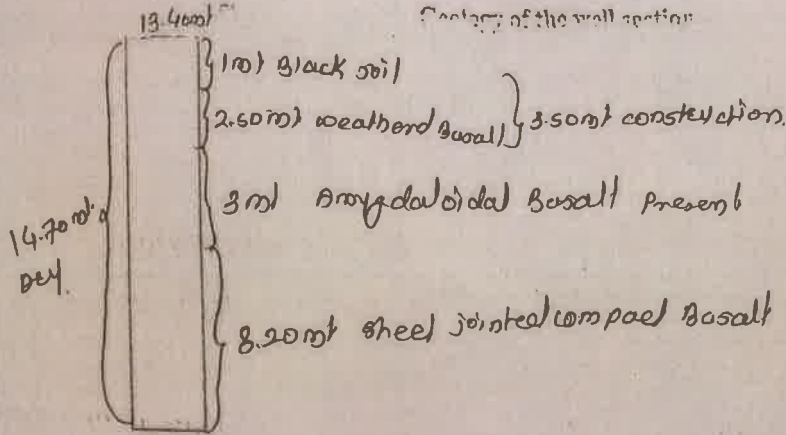 13.40mt
of the well section
1mt Black soil
2.50mt weatherd Basalt
3.50mt constuction.
3mt Amygdaloidal Basalt Present
14.70mt.
8.20mt sheet jointed compact Basalt